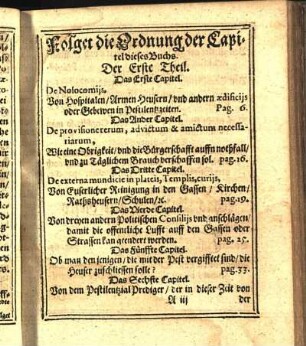 Folget die Ordnung der Capi-
tel dieses Buchs.
Der Erste Theil.
Das Erste Capitel.
De Nosocomijs,
Von Hospitalen / Armen Heusern / vnd andern ædificijs
oder Gebewen in Pestilentzzeiten. Pag. 6.
Das Ander Capitel.
De provisione rerum, ad victum & amictum necessa-
riarum,
Wie eine Obrigkeit / vnd die Bürgerschafft auffn nothfall /
vnd zu Täglichem Brauch verschaffen sol. pag. 16.
Das Dritte Capitel.
De externa mundicie in plateis, Templis, curijs,
Von Euserlicher Reinigung in den Gassen / Kirchen /
Rathsheusern / Schulen / ec. pag. 19.
Das Vierde Capitel.
Von dreyen andern Politischen Consilijs vnd anschlägen /
damit die offentliche Lufft auff den Gassen oder
Strassen kan geendert werden. pag. 25.
Das Fünffte Capitel.
Ob man den jenigen / die mit der Pest vergifftet sind / die
Heuser zuschliessen solle? pag. 33.
Das Sechste Capitel.
Von dem Pestilentzial Prediger / der in dieser Zeit von
A iij der